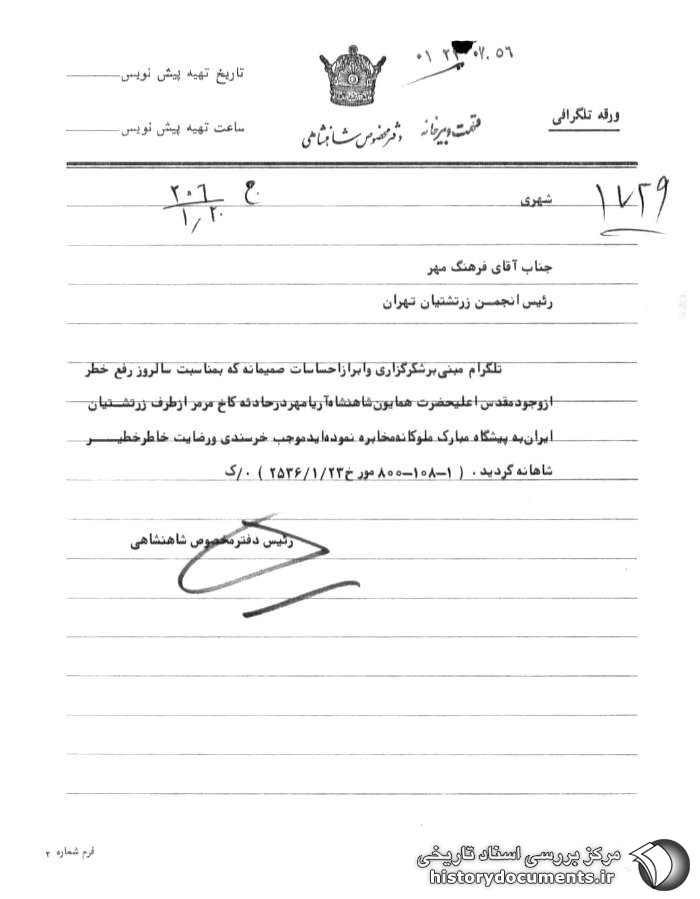 ۰۱ ۲۳ ۰۷.۵۶
تاریخ تهیه پیش نویس
ورقه تلگرافی
ساعت تهیه پیش نویس
قسمت دبیرخانه
دفتر مخصوص شاهنشاهی
۱۷۲۹
شهری
ج ۲۰۶
۱٫۲۰
جناب آقای فرهنگ مهر
رئیس انجمن زرتشتیان تهران
تلگرام مبنی برشکرگزاری وابرازاحساسات صمیمانه که بمناسبت سالروز رفع خطر
ازوجودمقدس اعلیحضرت همایون شاهنشاه آریامهردرحادثه کاخ مرمر ازطرف زرتشتیان
ایران به پیشگاه مبارک ملوکانه مخابره نموده ایدموجب خرسندی ورضایت خاطرخطیر
شاهانه گردید . ( ۱-۱۰۸-۸۰۰ مورخ ۲۵۳۶/۱/۲۳ ) ۰/ک
رئیس دفترمخصوص شاهنشاهی
فرم شماره ۲
مرکز بررسی اسناد تاریخی
historydocuments.ir